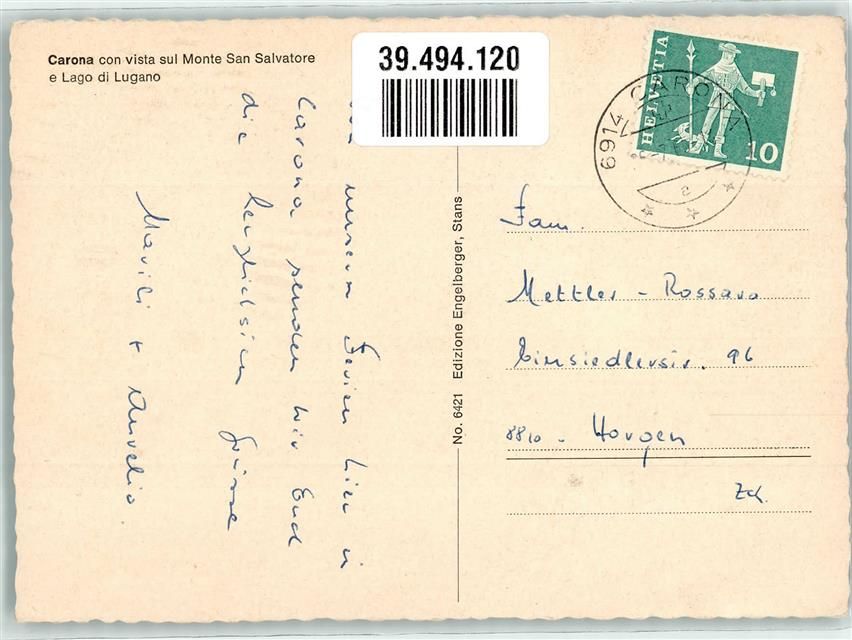 Carona con vista sul Monte San Salvatore
e Lago di Lugano
39.494.120
HELVETIA
10
6914 CARONA
a
unseren Ferien hier in
Carona senden wir Euch
die herzlichsten Grüsse
Marili + Aurelio
No. 6421 Edizione Engelberger, Stans
Fam.
Mettler - Rossaro
Einsiedlerstr. 96
8810 - Horgen
Zch.